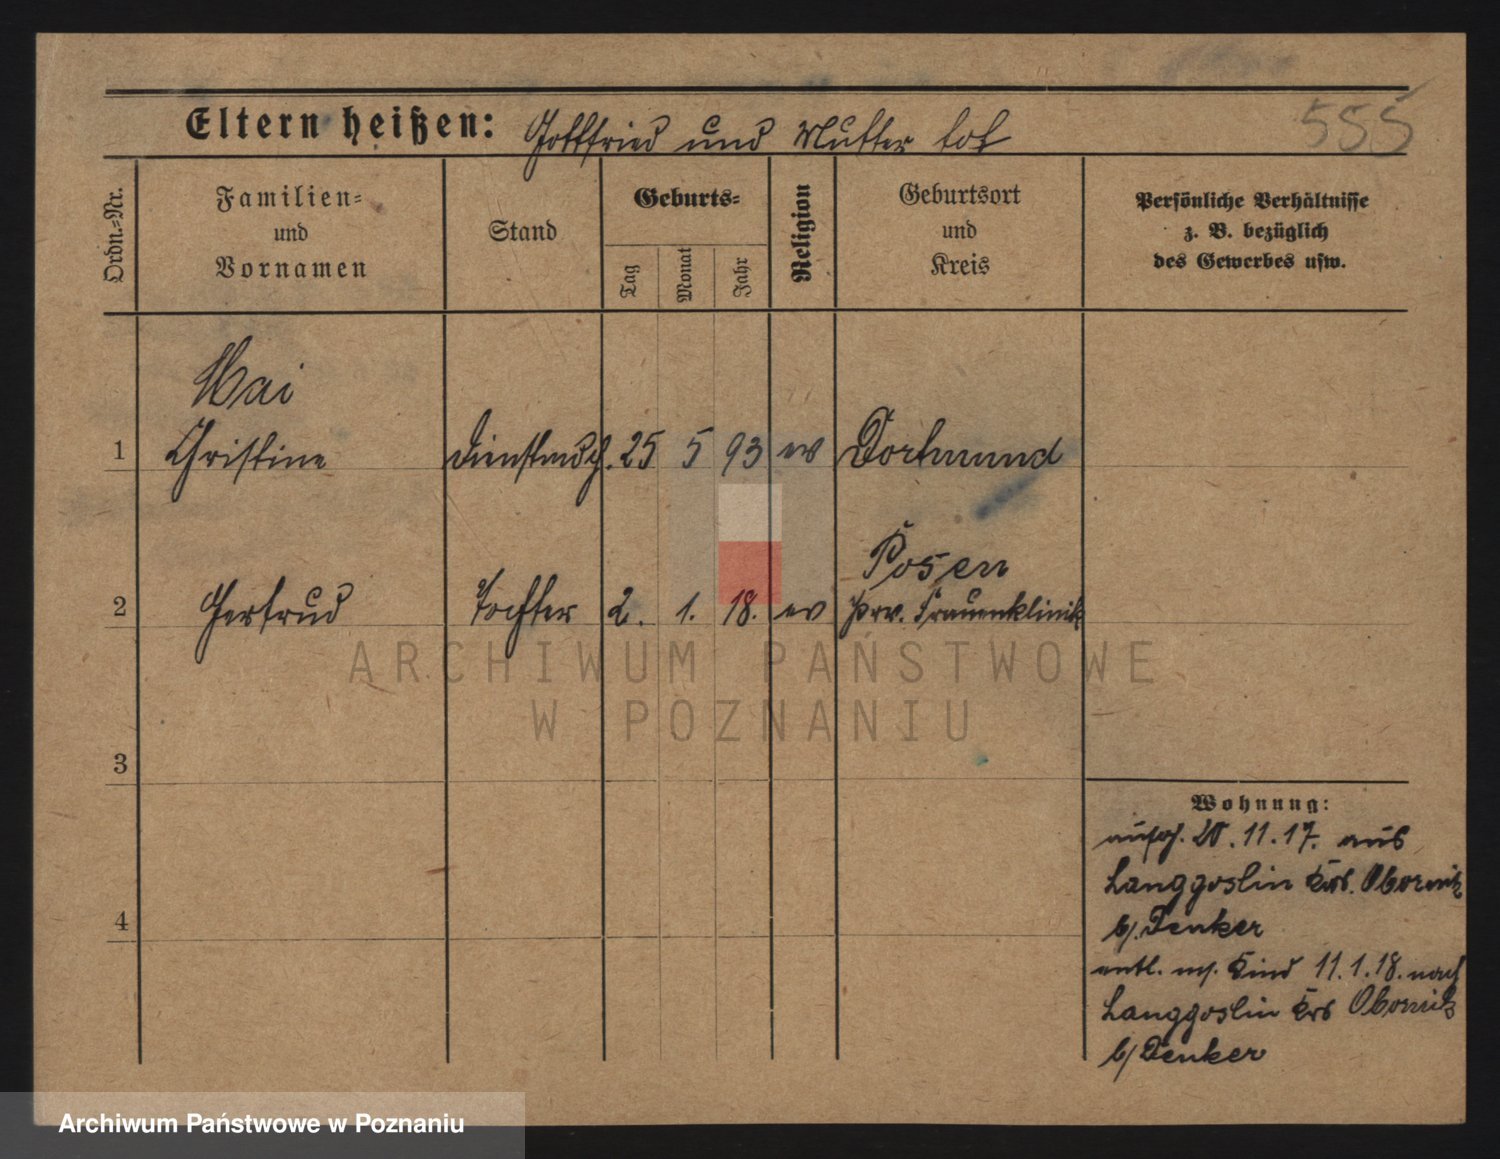 Eltern heißen: Gottfried und Mutter tot
555
Ordn.=Nr.
Familien=
und
Vornamen
Stand
Geburts=
Tag
Monat
Jahr
Religion
Geburtsort
und
Kreis
Persönliche Verhältnisse
z. B. bezüglich
des Gewerbes usw.
Mai
1 Christine Dienstmdch. 25 5 93 ev Dortmund
Posen
2 Gertrud Tochter 2. 1. 18. ev prv. Frauenklinik
3
4
Wohnung:
aufg. 20.11.17. aus
Langgoslin Krs. Obornik
b/ Denker
entl. m. Kind 11.1.18. nach
Langgoslin Krs Obornik
b/ Denker
ARCHIWUM PAŃSTWOWE
W POZNANIU
Archiwum Państwowe w Poznaniu